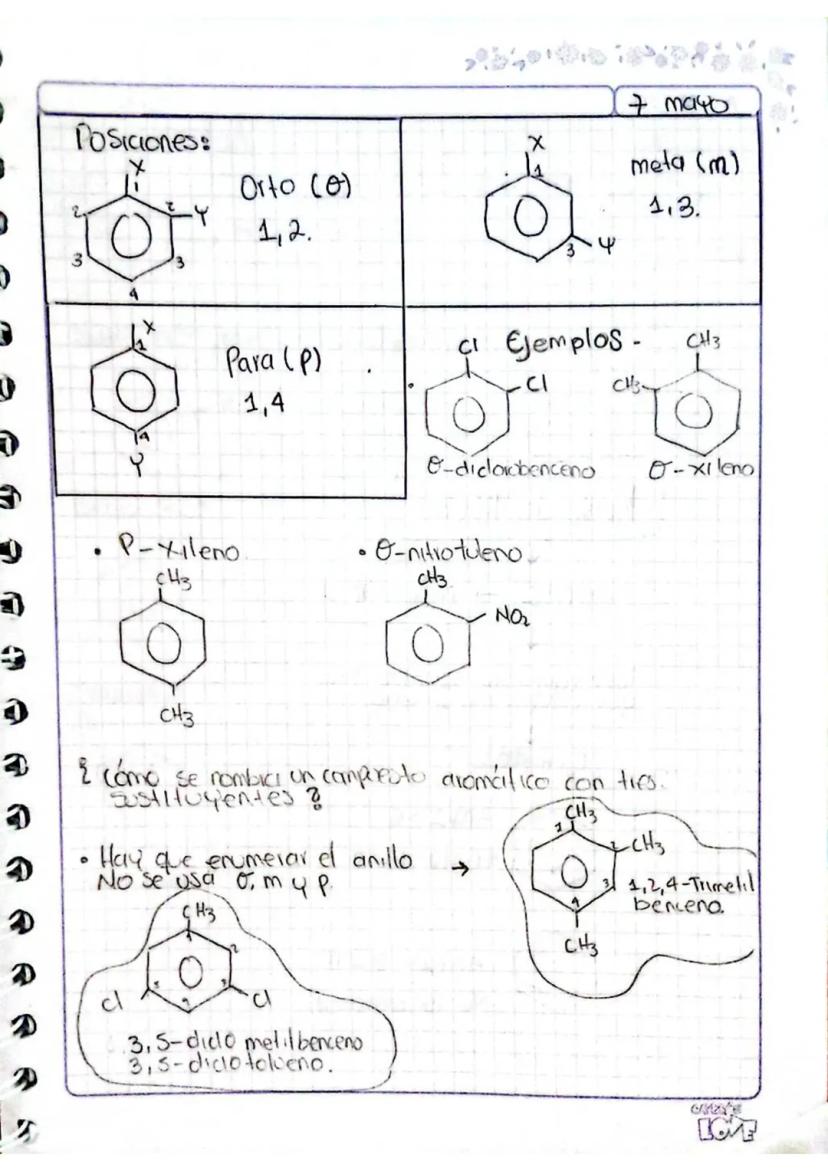 7 mayo
Posiciones:
X
1
2
2
Y
3
3
4
Orto (O)
1,2.
X
1
3
Y
meta (m)
1,3.
X
1
4
Y
Para (P)
1,4
Ejemplos -
Cl
Cl
O-diclorobenceno
CH3
CH3
O-xileno
• P-xileno
CH3
CH3
• O-nitrotuleno
CH3
NO2
¿ cómo se nombra un compuesto aromático con tres
sustituyentes ?
• Hay que enumerar el anillo →
No se usa O, m y p.
CH3
1
2
CH3
3
4
CH3
1,2,4-Trimetil
benceno.
CH3
1
2
3
Cl
Cl
3,5-diclo metilbenceno
3,5-diclotolueno.
LOVE